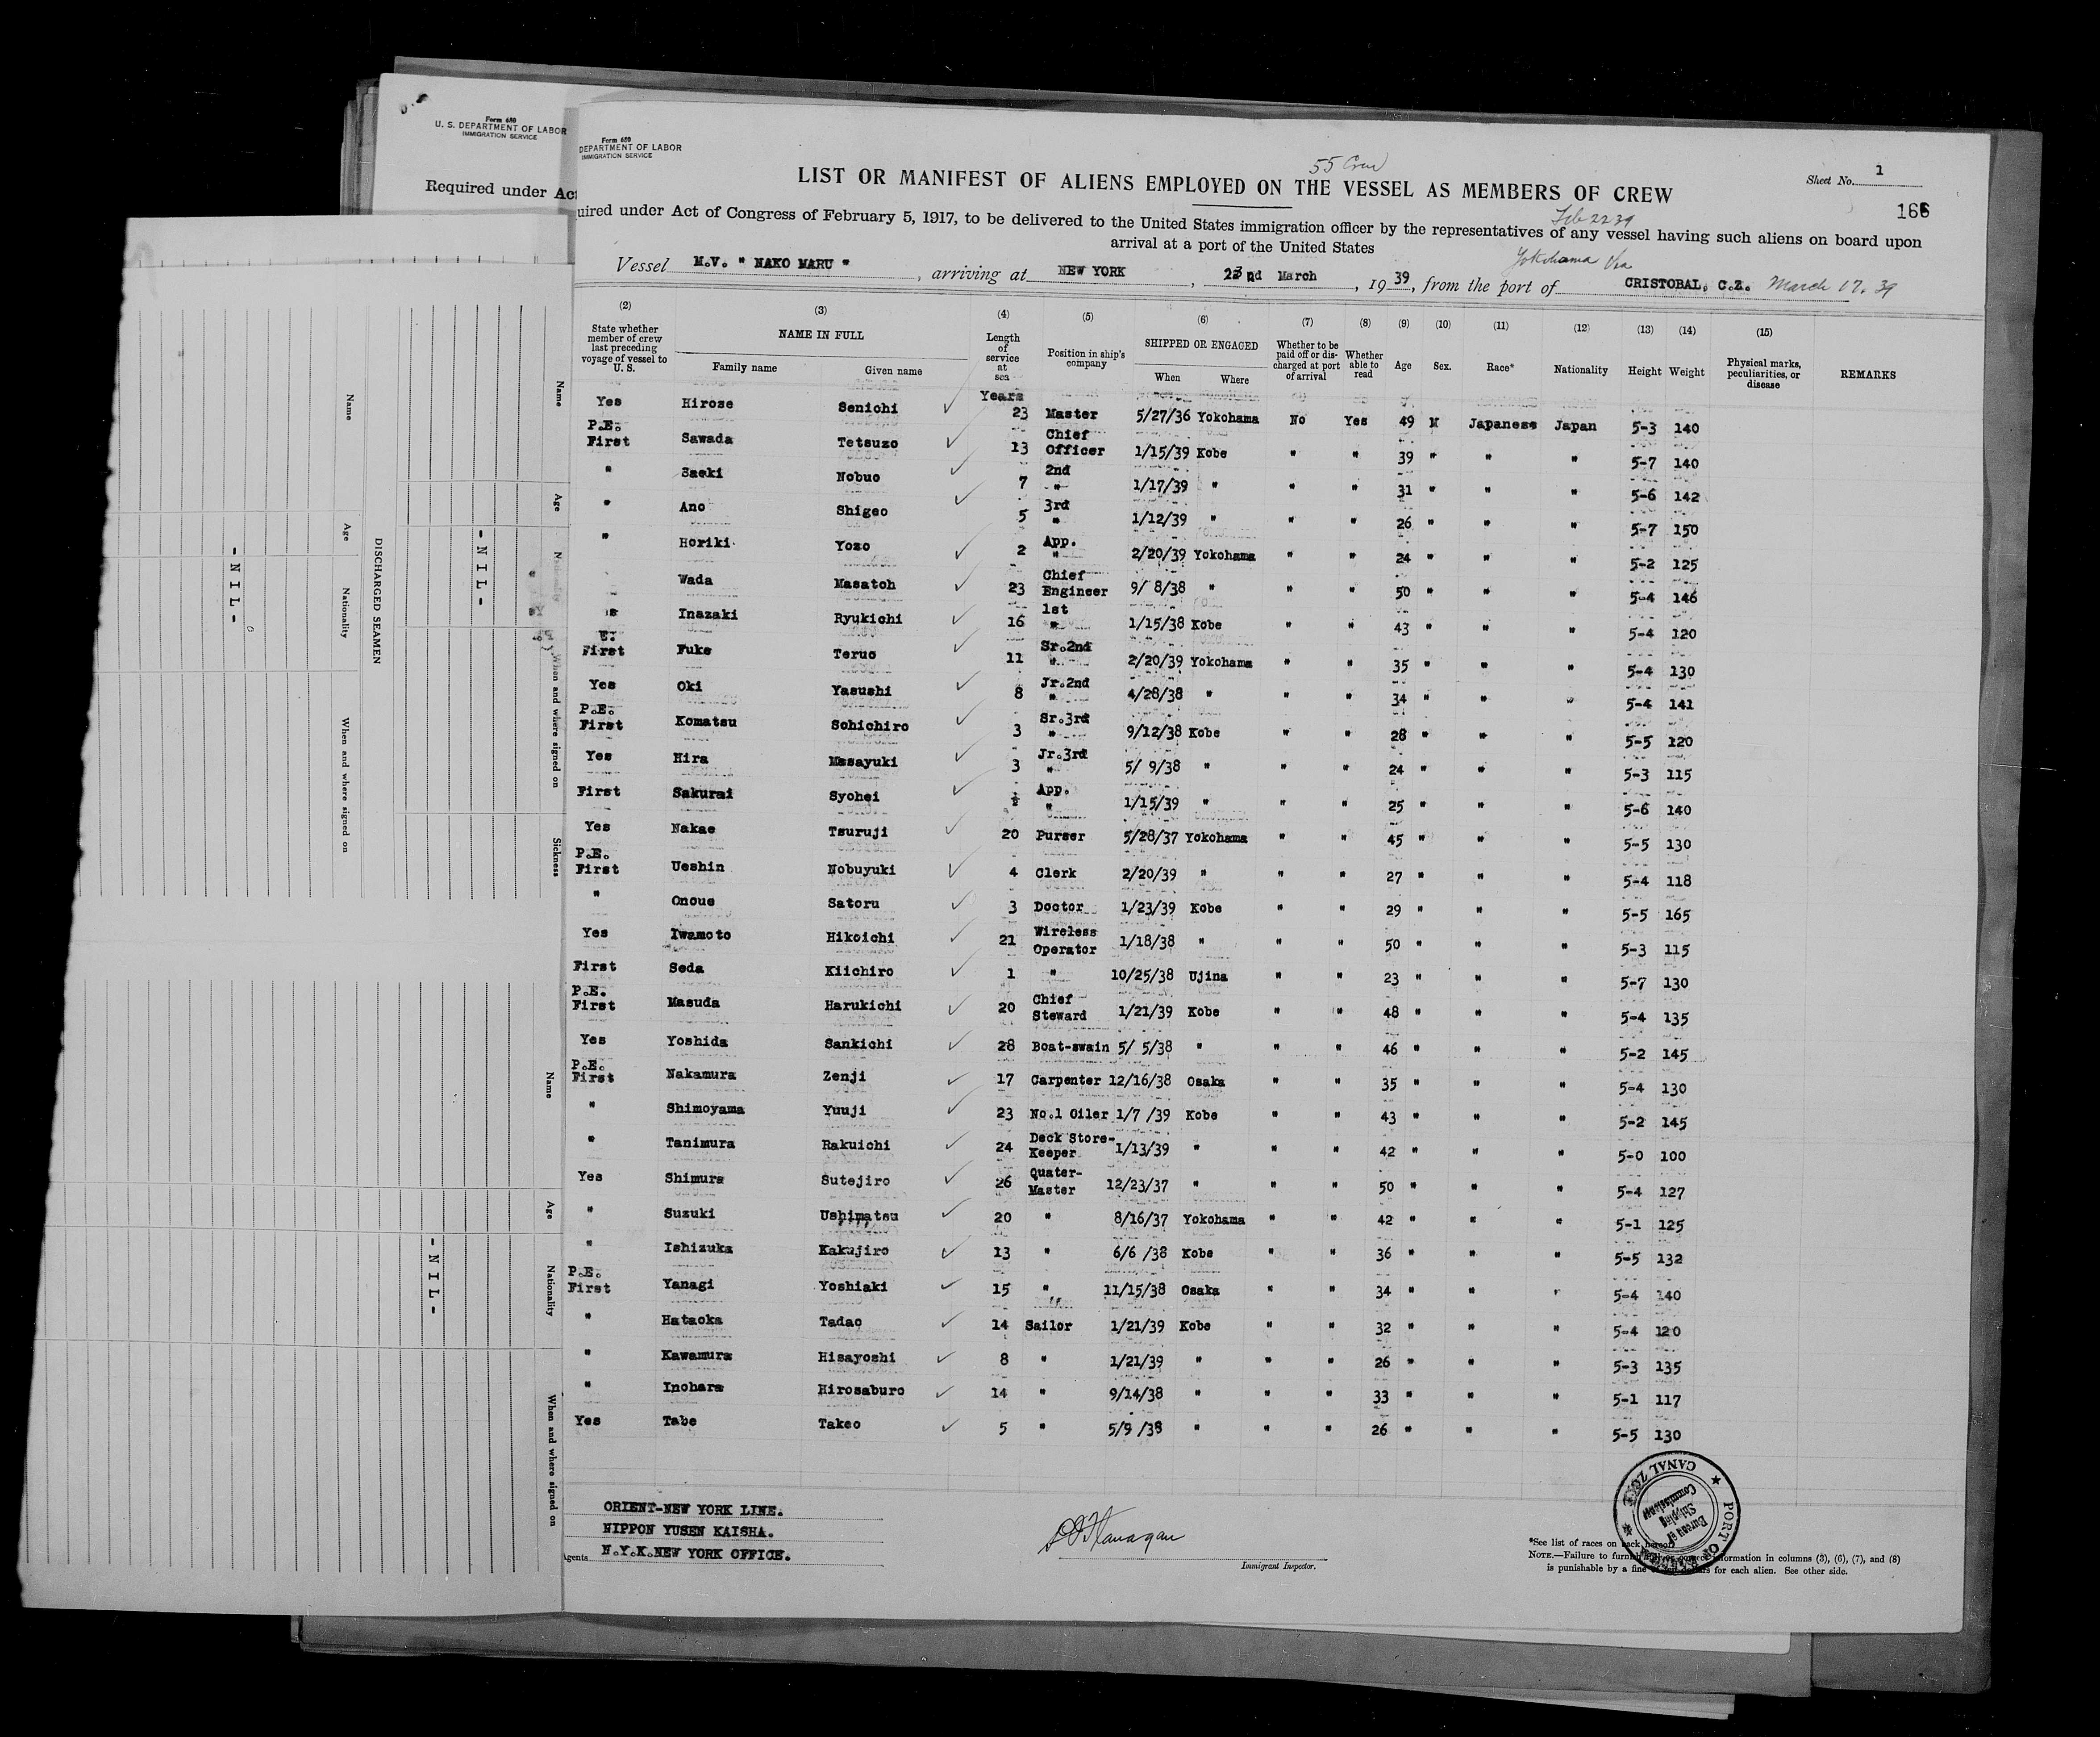 Form 689
U. S. DEPARTMENT OF LABOR
IMMIGRATION SERVICE
Required under Act
Form 689
DEPARTMENT OF LABOR
IMMIGRATION SERVICE
55 Crew
LIST OR MANIFEST OF ALIENS EMPLOYED ON THE VESSEL AS MEMBERS OF CREW
Sheet No. 1
166
uired under Act of Congress of February 5, 1917, to be delivered to the United States immigration officer by the representatives of any vessel having such aliens on board upon
Feb 22 39
arrival at a port of the United States
Yokohama Via
Vessel M.V. " NAKO MARU ", arriving at NEW YORK, 23 nd March, 19 39, from the port of CRISTOBAL, C.Z. March 17. 39
(2) (3) (4) (5) (6) (7) (8) (9) (10) (11) (12) (13) (14) (15)
State whether member of crew last preceding voyage of vessel to U. S. NAME IN FULL Family name Given name Length of service at sea Position in ship's company SHIPPED OR ENGAGED When Where Whether to be paid off or discharged at port of arrival Whether able to read Age Sex. Race* Nationality Height Weight Physical marks, peculiarities, or disease REMARKS
Years
Yes Hirose Senichi 23 Master 5/27/36 Yokohama No Yes 49 M Japanese Japan 5-3 140
P.E. First Sawada Tetsuzo 13 Chief Officer 1/15/39 Kobe " " 39 " " " 5-7 140
" Saeki Nobuo 7 2nd " 1/17/39 " " " 31 " " " 5-6 142
" Ano Shigeo 5 3rd " 1/12/39 " " " 26 " " " 5-7 150
" Horiki Yozo 2 App. " 2/20/39 Yokohama " " 24 " " " 5-2 125
Wada Masatoh 23 Chief Engineer 9/ 8/38 " " " 50 " " " 5-4 146
" Inazaki Ryukichi 16 1st " 1/15/38 Kobe " " 43 " " " 5-4 120
E. First Fuke Teruo 11 Sr.2nd " 2/20/39 Yokohama " " 35 " " " 5-4 130
Yes Oki Yasushi 8 Jr.2nd " 4/28/38 " " " 34 " " " 5-4 141
P.E. First Komatsu Sohichiro 3 Sr.3rd " 9/12/38 Kobe " " 28 " " " 5-5 120
Yes Hira Masayuki 3 Jr.3rd " 5/ 9/38 " " " 24 " " " 5-3 115
First Sakurai Syohei ½ App. " 1/15/39 " " " 25 " " " 5-6 140
Yes Nakae Tsuruji 20 Purser 5/28/37 Yokohama " " 45 " " " 5-5 130
P.E. First Ueshin Nobuyuki 4 Clerk 2/20/39 " " " 27 " " " 5-4 118
" Onoue Satoru 3 Doctor 1/23/39 Kobe " " 29 " " " 5-5 165
Yes Iwamoto Hikoichi 21 Wireless Operator 1/18/38 " " " 50 " " " 5-3 115
First Seda Kiichiro 1 " 10/25/38 Ujina " " 23 " " " 5-7 130
P.E. First Masuda Harukichi 20 Chief Steward 1/21/39 Kobe " " 48 " " " 5-4 135
Yes Yoshida Sankichi 28 Boat-swain 5/ 5/38 " " " 46 " " " 5-2 145
P.E. First Nakamura Zenji 17 Carpenter 12/16/38 Osaka " " 35 " " " 5-4 130
" Shimoyama Yuuji 23 No.1 Oiler 1/7 /39 Kobe " " 43 " " " 5-2 145
" Tanimura Rakuichi 24 Deck Store-Keeper 1/13/39 " " " 42 " " " 5-0 100
Yes Shimura Sutejiro 26 Quater-Master 12/23/37 " " " 50 " " " 5-4 127
" Suzuki Ushimatsu 20 " 8/16/37 Yokohama " " 42 " " " 5-1 125
" Ishizuka Kakujiro 13 " 6/6 /38 Kobe " " 36 " " " 5-5 132
P.E. First Yanagi Yoshiaki 15 " 11/15/38 Osaka " " 34 " " " 5-4 140
" Hataoka Tadao 14 Sailor 1/21/39 Kobe " " 32 " " " 5-4 120
" Kawamura Hisayoshi 8 " 1/21/39 " " " 26 " " " 5-3 135
" Inohara Hirosaburo 14 " 9/14/38 " " " 33 " " " 5-1 117
Yes Tabe Takeo 5 " 5/9 /38 " " " 26 " " " 5-5 130
ORIENT-NEW YORK LINE.
NIPPON YUSEN KAISHA.
Agents N.Y.K.NEW YORK OFFICE.
Flanagan
Immigrant Inspector.
CANAL ZONE
PORT OF
Bureau of Shipping Commissioner
*See list of races on back hereof.
NOTE.—Failure to furnish information in columns (3), (6), (7), and (8)
is punishable by a fine for each alien. See other side.
Name
Age
Nationality
When and where signed on
DISCHARGED SEAMEN
- NIL -
Name
Age
When and where signed on
Sickness
- NIL -
Name
Age
Nationality
When and where signed on
- NIL -